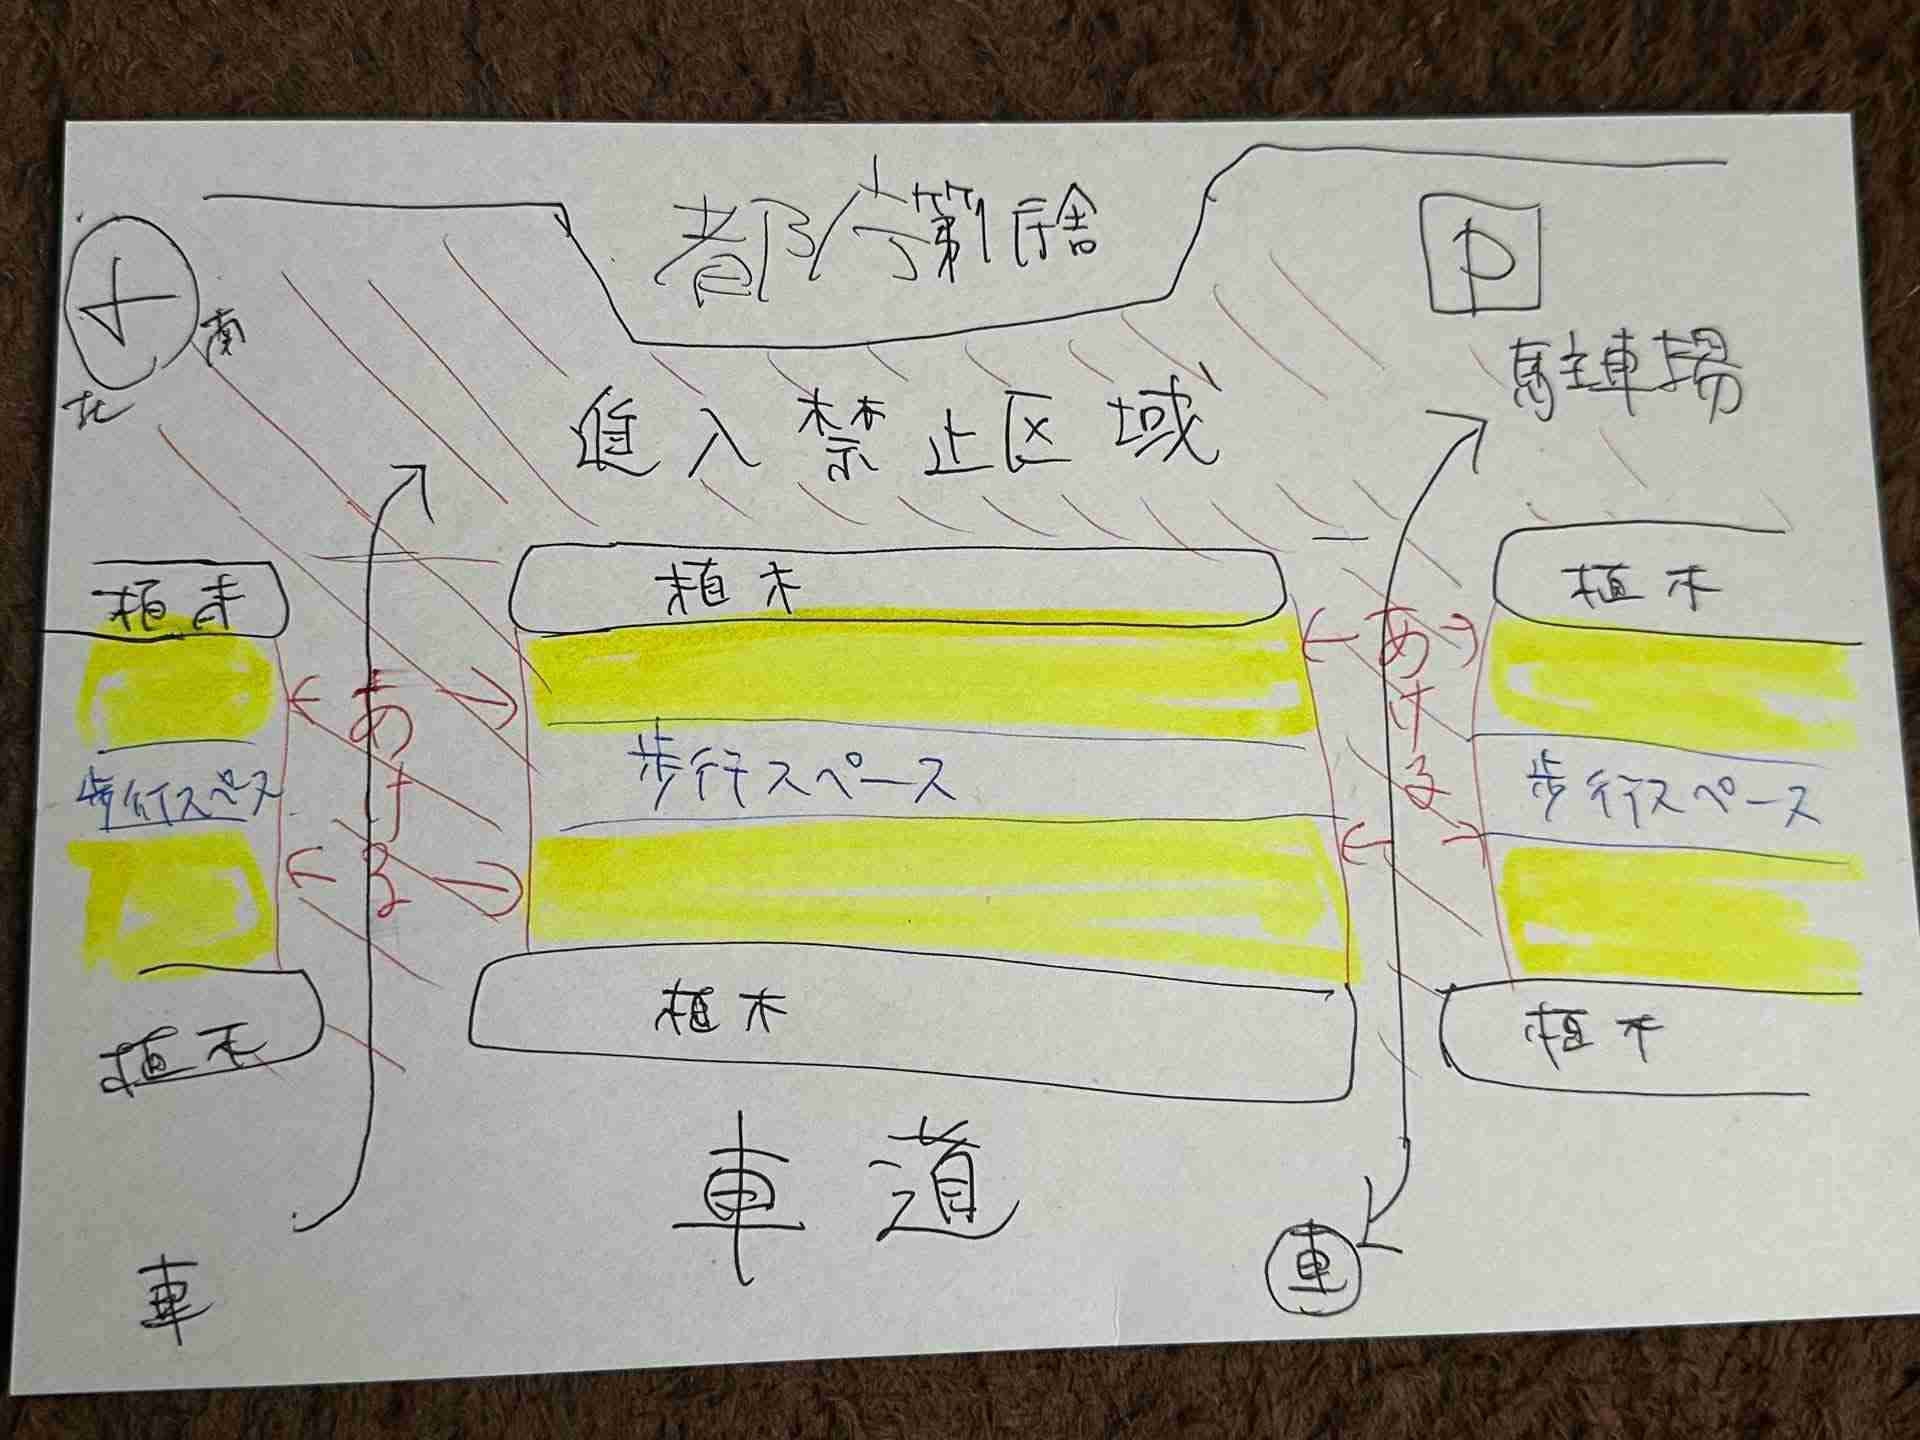 都庁第1庁舎
P
南
北
駐車場
進入禁止区域
植木
植木
植木
あける
あける
歩行スペース
歩行スペース
歩行スペース
植木
植木
植木
車道
車
車